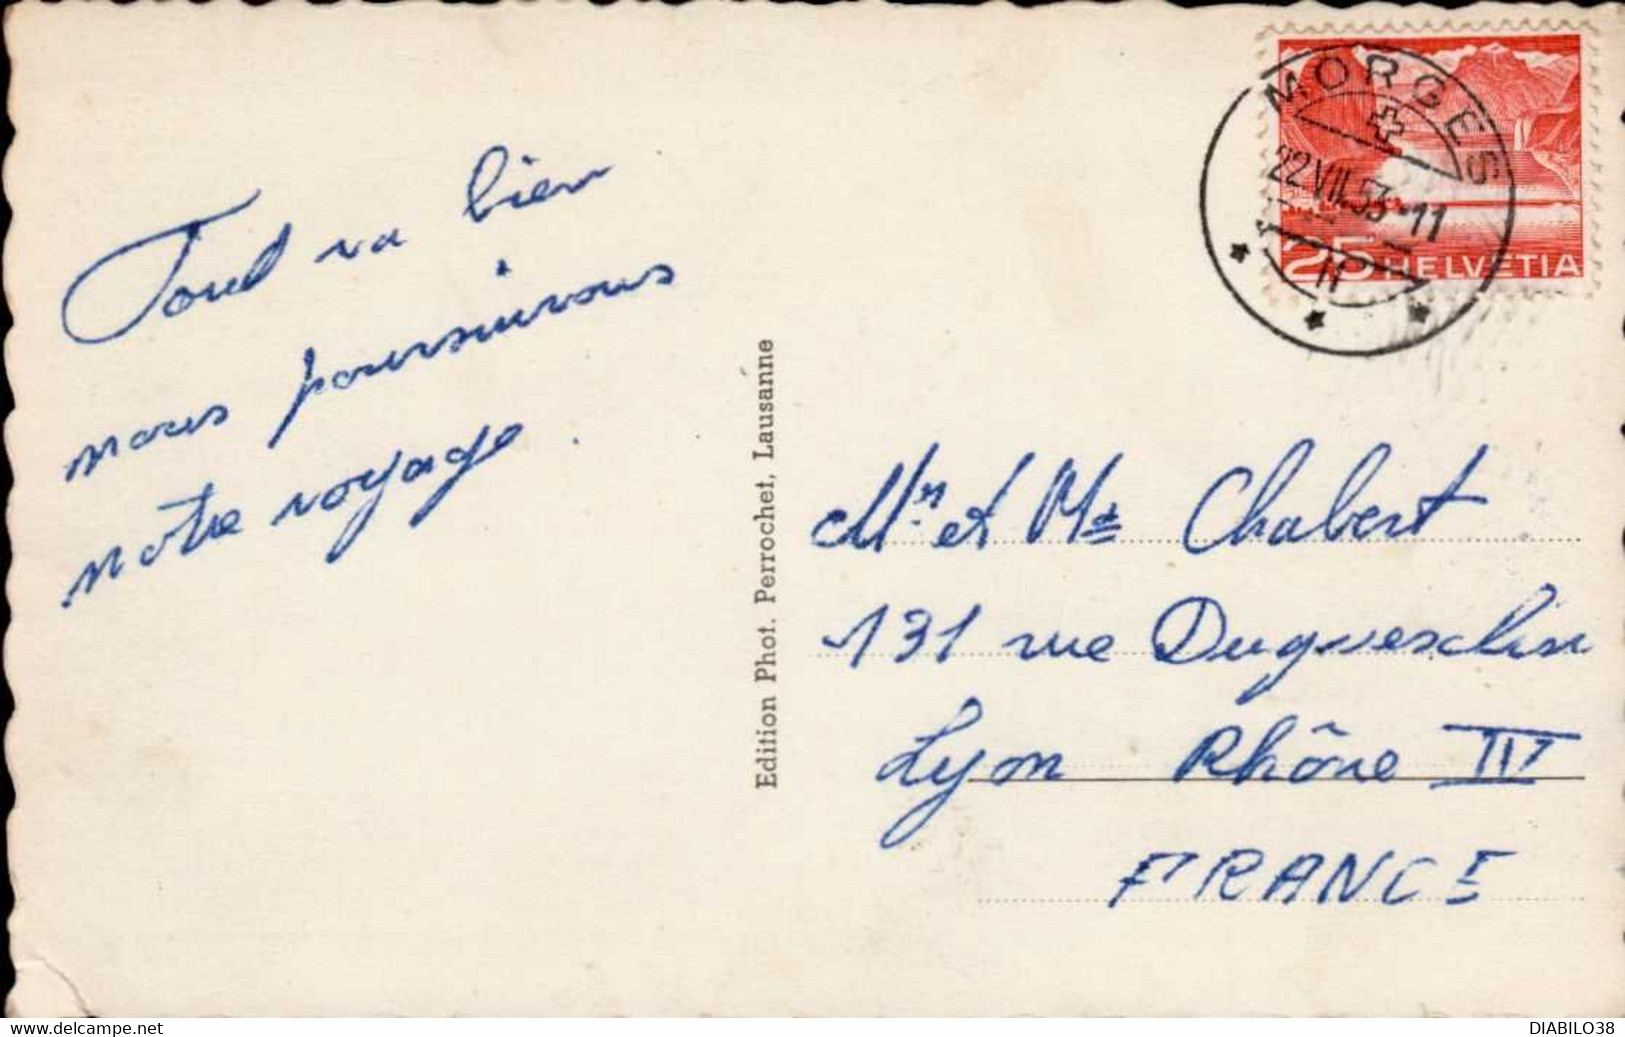 Tout va bien
nous poursuivons
notre voyage.
Edition Phot. Perrochet, Lausanne
MORGES
22.VII.53-11
25 HELVETIA
Mr et Me Chabert
131 rue Duguesclin
Lyon Rhône III
FRANCE
delcampe.net
DIABILO38